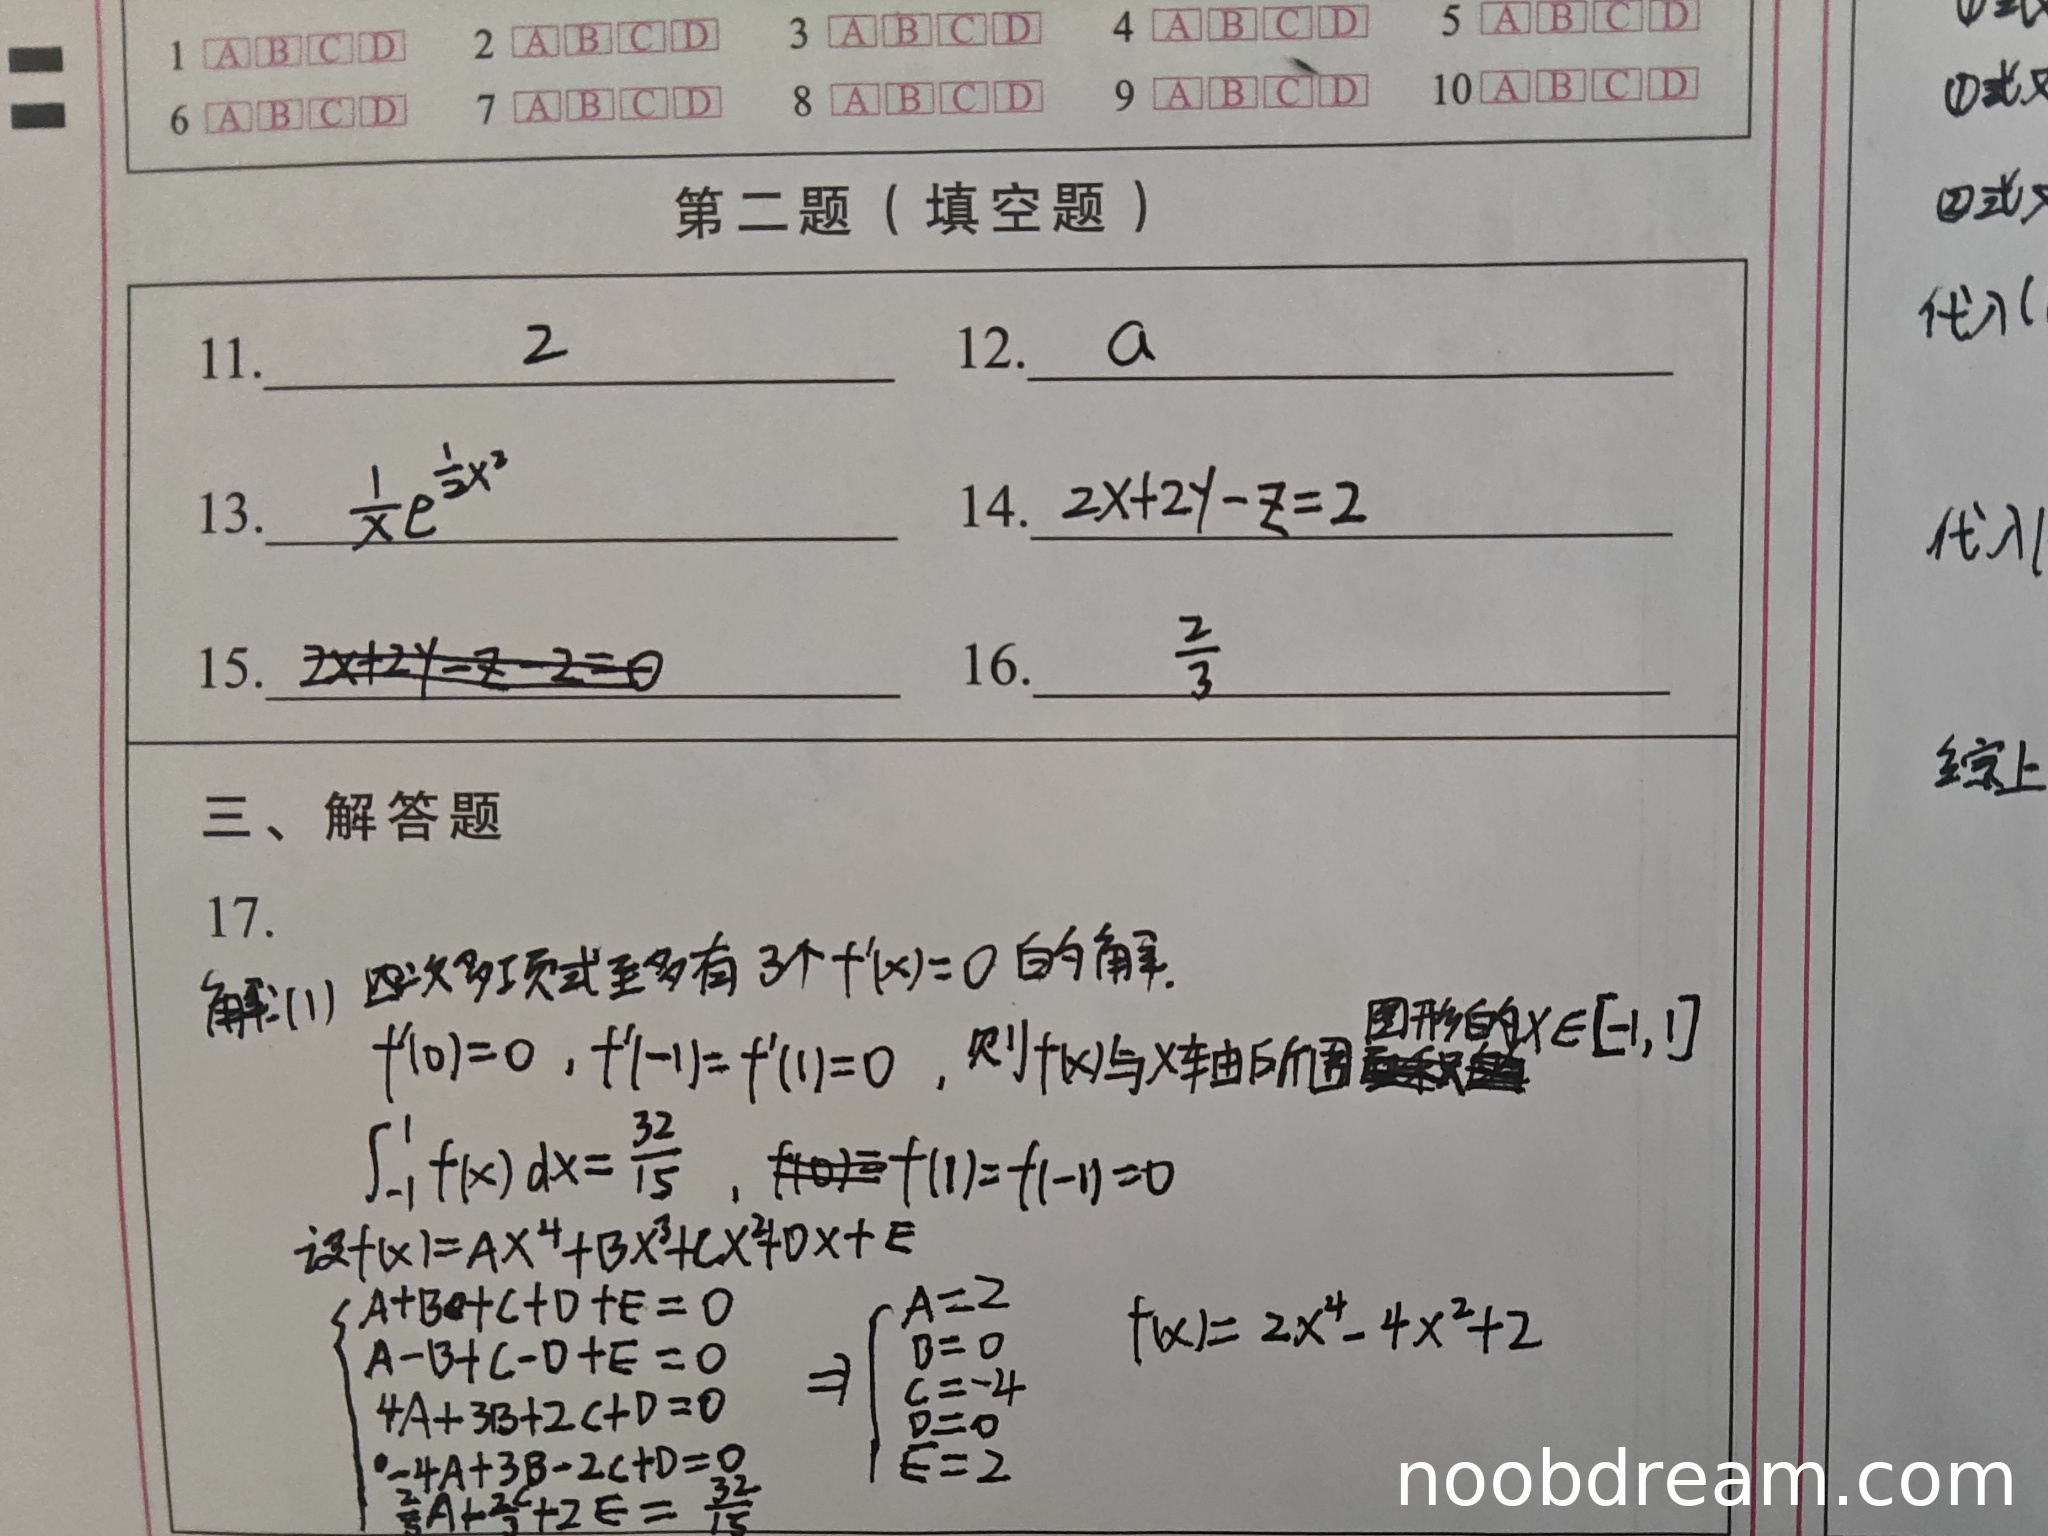 1 A B C D 2 A B C D 3 A B C D 4 A B C D 5 A B C D
6 A B C D 7 A B C D 8 A B C D 9 A B C D 10 A B C D
第二题(填空题)
11. 2 12. a
13. 1/x e^(1/2 x²) 14. 2x+2y-z=2
15. 2x+2y-z-2=0 16. 2/3
三、解答题
17.
解:(1) 四次多项式至多有3个f'(x)=0的解.
f'(0)=0, f'(-1)=f'(1)=0, 则f(x)与x轴所围图形的x∈[-1,1]
∫_{-1}^{1} f(x)dx=32/15, f(0)= f(1)=f(-1)=0
设f(x)=Ax⁴+Bx³+Cx²+Dx+E
A+B+C+D+E=0
A-B+C-D+E=0
4A+3B+2C+D=0
-4A+3B-2C+D=0
2/5A+2C/3+2E=32/15
⇒
A=2
B=0
C=-4
D=0
E=2
f(x)=2x⁴-4x²+2
①式
②式
代入
代入
综上
noobdream.com